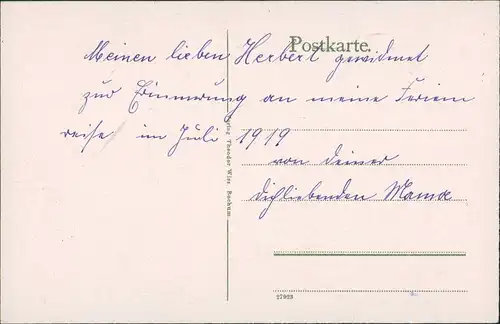 Postkarte.
Meinen lieben Herbert gewidmet
zur Erinnerung an meine Ferien
reise im Juli 1919
von deiner
dichliebenden Mama
Verlag Theodor Wirs. Bochum
27923